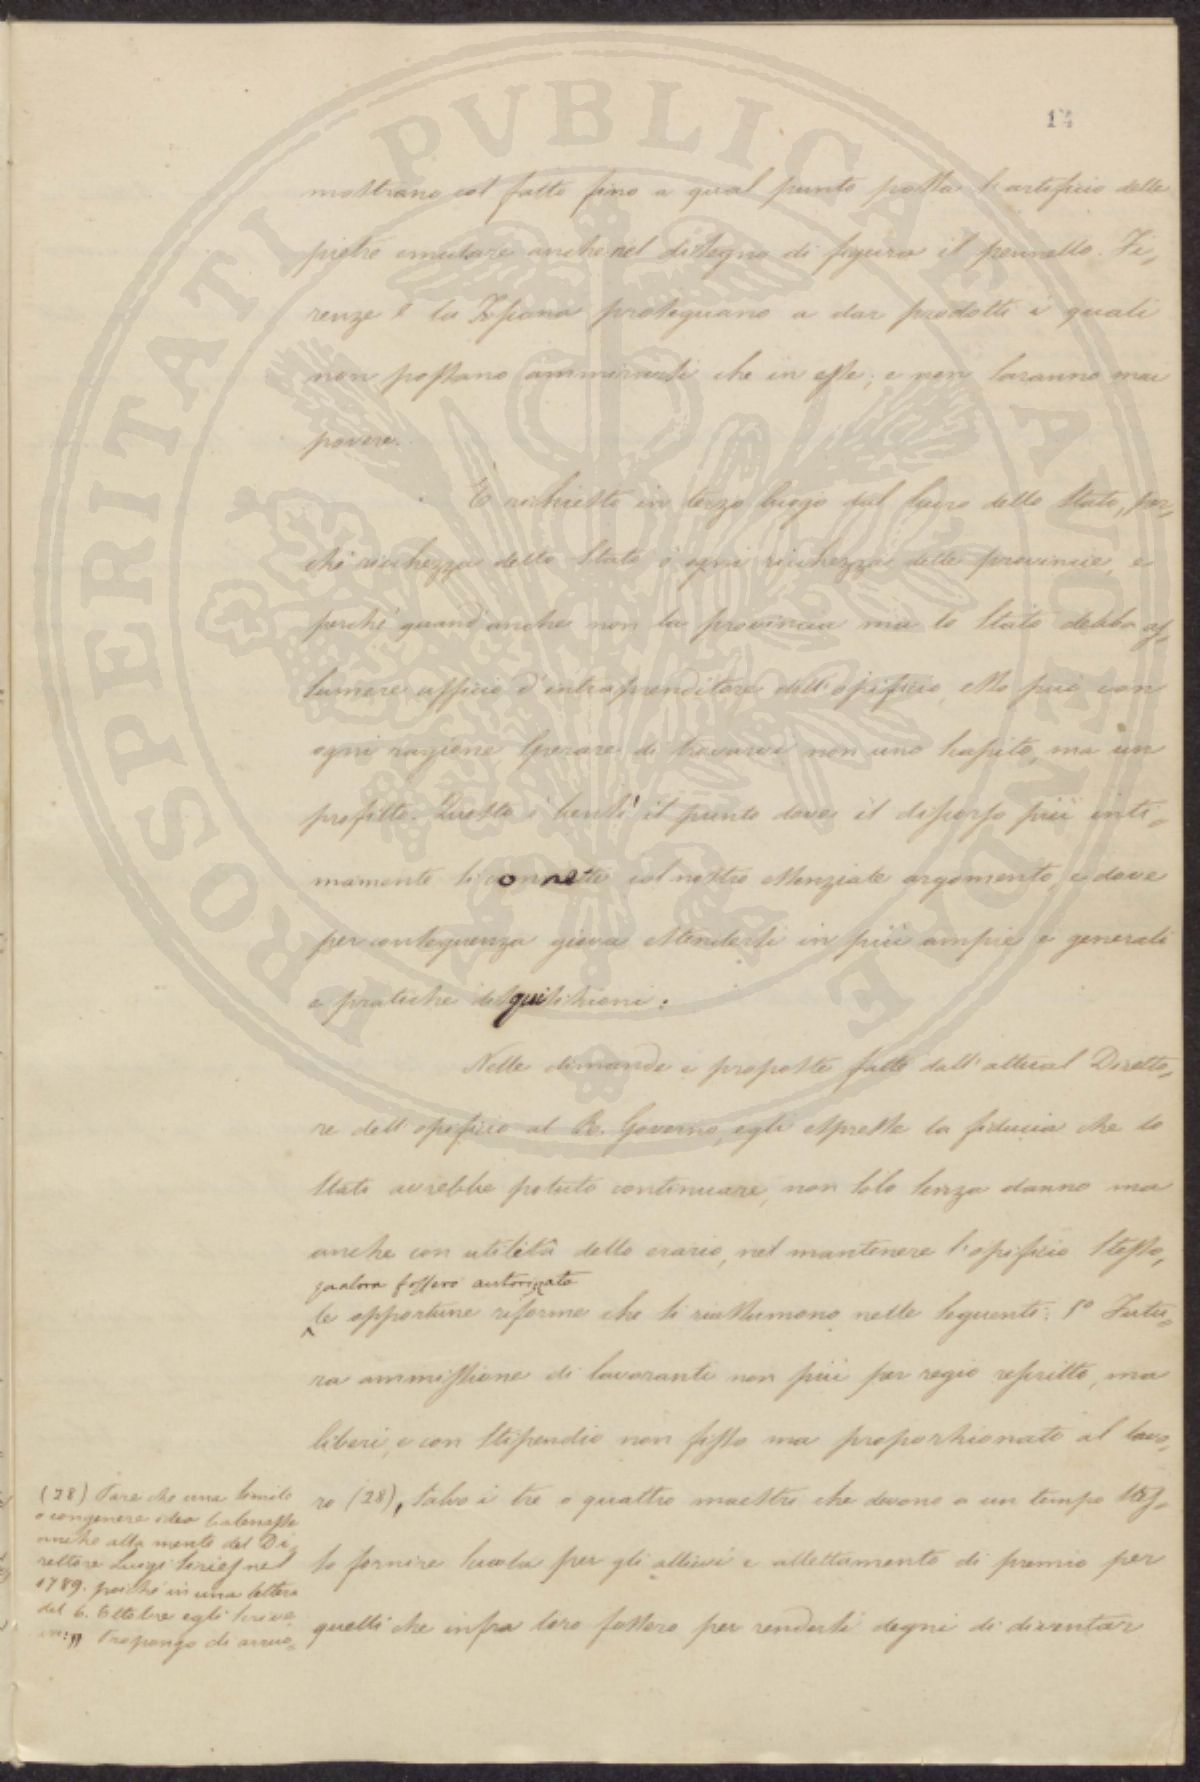 14
mostrano col fatto fino a qual punto possa l'artificio delle
pietre emulare anche nel disegno di figura il pennello. Fi-
renze e la Toscana proseguano a dar prodotti i quali
non possano ammirarsi che in esse, e non saranno mai
povere.
È richiesto in terzo luogo dal lucro dello Stato, per-
chè ricchezza dello Stato è ogni ricchezza delle provincie, e
perchè quand'anche non la provincia ma lo Stato debba as-
sumere ufficio d'intraprenditore dell'opificio, esso può con
ogni ragione sperare di trovarvi non uno scapito, ma un
profitto. Questo è bensì il punto dove il discorso più inti-
mamente si connette col nostro essenziale argomento, e dove
per conseguenza giova estendersi in più ampie e generali
e pratiche disquisizioni.
Nelle dimande e proposte fatte dall'attual Diretto-
re dell'opificio al R. Governo, egli espresse la fiducia che lo
Stato avrebbe potuto continuare, non solo senza danno ma
anche con utilità dello erario, nel mantenere l'opificio stesso,
qualora fossero autorizzate
le opportune riforme che si riassumono nelle seguenti: 1º Futu-
ra ammissione di lavoranti non più per regio rescritto, ma
liberi, e con stipendio non fisso ma proporzionato al lavo-
ro (28), salvo i tre o quattro maestri che devono a un tempo stes-
so fornire scuola per gli allievi e allettamento di premio per
quelli che infra loro fossero per rendersi degni di diventar
(28) Pare che una simile
o congenere idea balenasse
anche alla mente del Di-
rettore Luigi Siries nel
1789. poichè in una lettera
del 6. Ottobre egli scrive
va: „ Propongo di arruo-